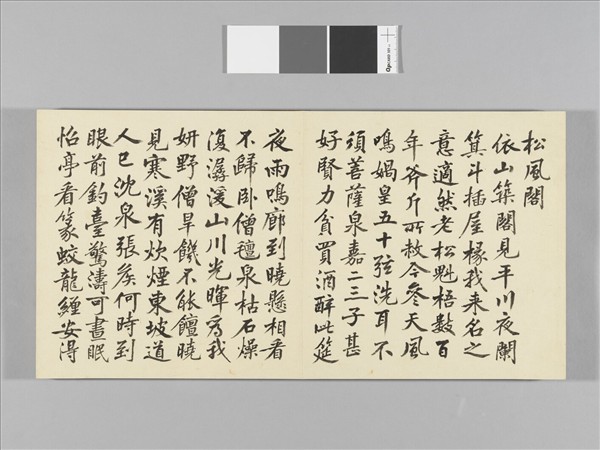 松風閣
依山築閣見平川夜闌
箕斗插屋椽我来名之
意適然老松魁梧数百
年斧斤所赦今參天風
鳴媧皇五十弦洗耳不
須菩薩泉嘉二三子甚
好賢力貧買酒醉此筵
夜雨鳴廊到曉懸相看
不歸臥僧氊泉枯石燥
復潺湲山川光暉為我
妍野僧旱饑不能饘曉
見寒溪有炊煙東坡道
人已沈泉張侯何時到
眼前釣臺驚濤可晝眠
怡亭看篆蛟龍纏安得